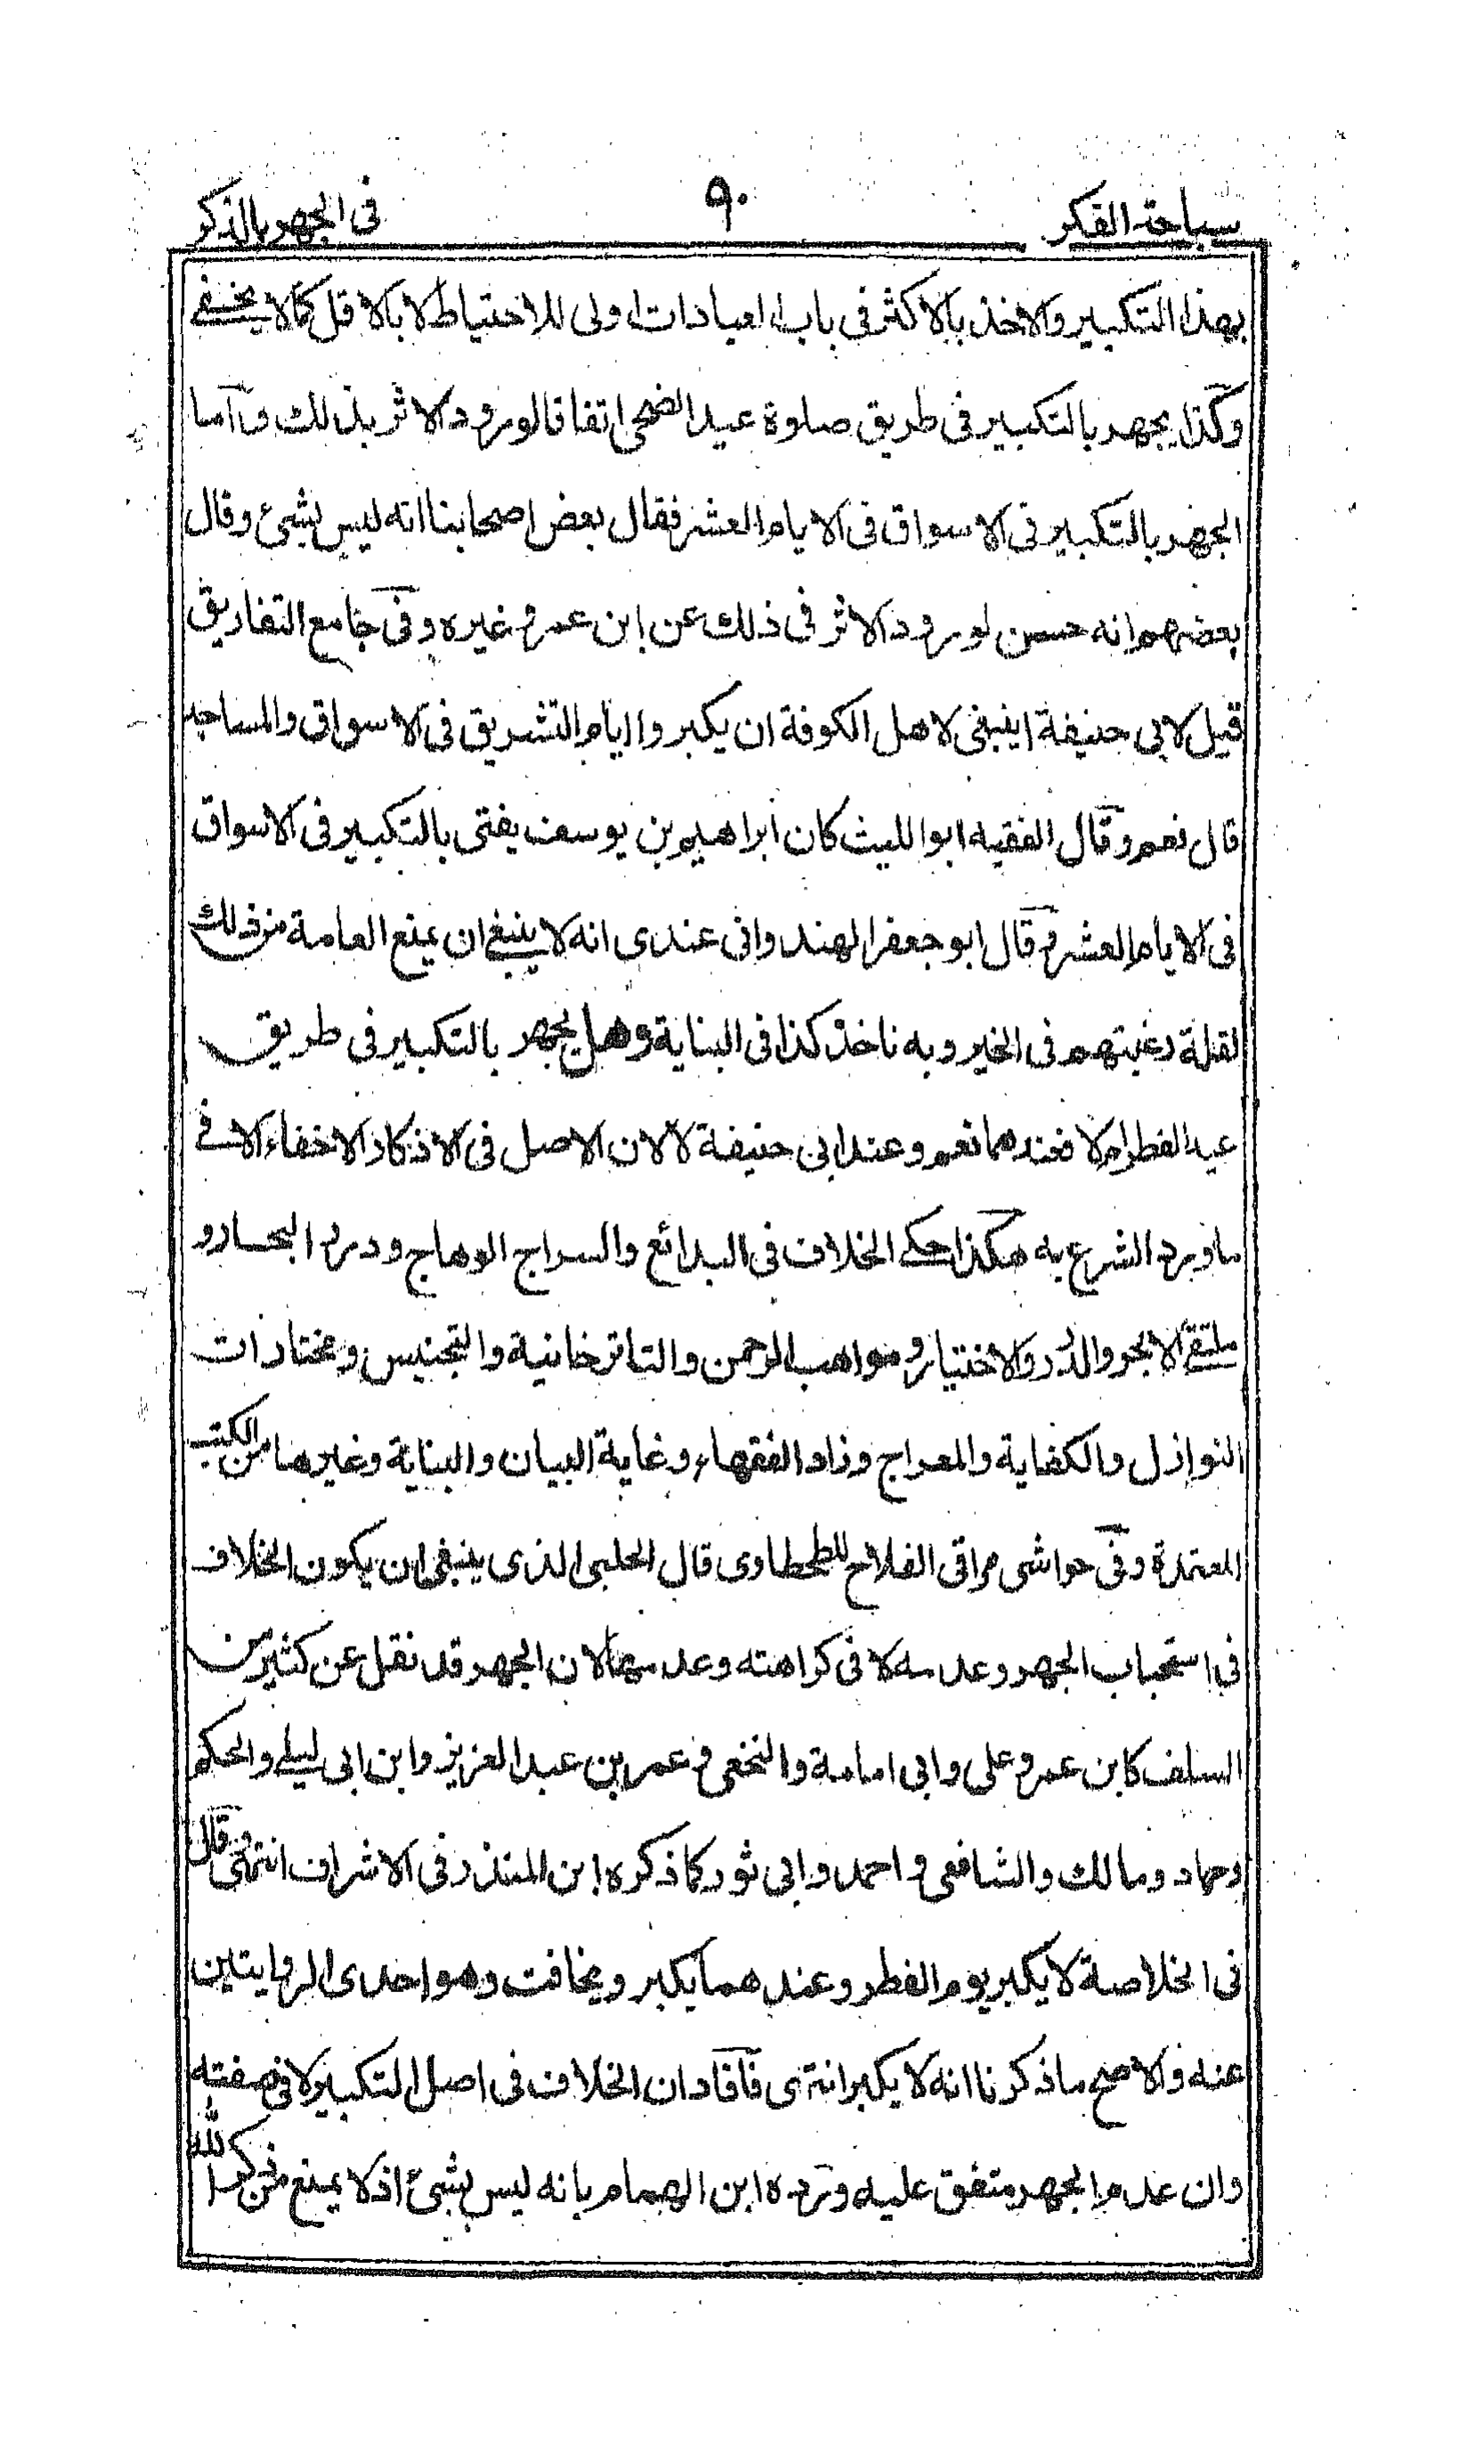 سباحة الفكر ٩٠ فى الجهر بالذكر
بهذا التكبير والاخذ بالاكثر فى باب العبادات اولى للاحتياط لا بالاقل كما لا يخفى
وكذا يجهر بالتكبير فى طريق صلوة عيد الضحى اتفاقا لورود الاثر بذلك واما
الجهر بالتكبير فى الاسواق فى الايام العشر فقال بعض اصحابنا انه ليس بشئ وقال
بعضهم انه حسن لورود الاثر فى ذلك عن ابن عمر وغيره وفى جامع التفاريق
قيل لابى حنيفة اينبغى لاهل الكوفة ان يكبروا ايام التشريق فى الاسواق والمساجد
قال نعم وقال الفقيه ابو الليث كان ابراهيم بن يوسف يفتى بالتكبير فى الاسواق
فى الايام العشر وقال ابو جعفر الهندوانى عندى انه لا ينبغى ان يمنع العامة من ذلك
لقلة رغبتهم فى الخير وبه ناخذ كذا فى البناية وهل يجهر بالتكبير فى طريق
عيد الفطر ام لا فعندهما نعم وعند ابى حنيفة لا لان الاصل فى الاذكار الاخفاء الا فى
ما ورد الشرع به هكذا حكى الخلاف فى البدائع والسراج الوهاج ودرر البحار و
ملتقى الابحر والدرر والاختيار ومواهب الرحمن والتاترخانية والتجنيس ومختارات
النوازل والكفاية والمعراج وزاد الفقهاء وغاية البيان والبناية وغيرها من الكتب
المعتمدة وفى حواشى مراقى الفلاح للطحطاوى قال الحلبى الذى ينبغى ان يكون الخلاف
فى استحباب الجهر وعدمه لا فى كراهته وعدمها لان الجهر قد نقل عن كثير من
السلف كابن عمر وعلى وابى امامة والنخعى وعمر بن عبد العزيز وابن ابى ليلى والحكم
وحماد ومالك والشافعى واحمد وابى ثور كما ذكره ابن المنذر فى الاشراف انتهى وقال
فى الخلاصة لا يكبر يوم الفطر وعندهما يكبر ويخافت وهو احدى الروايتين
عنه والاصح ما ذكرنا انه لا يكبر انتهى فافاد ان الخلاف فى اصل التكبير لا فى صفته
وان عدم الجهر متفق عليه ورده ابن الهمام بانه ليس بشئ اذ لا يمنع من ذكر الله